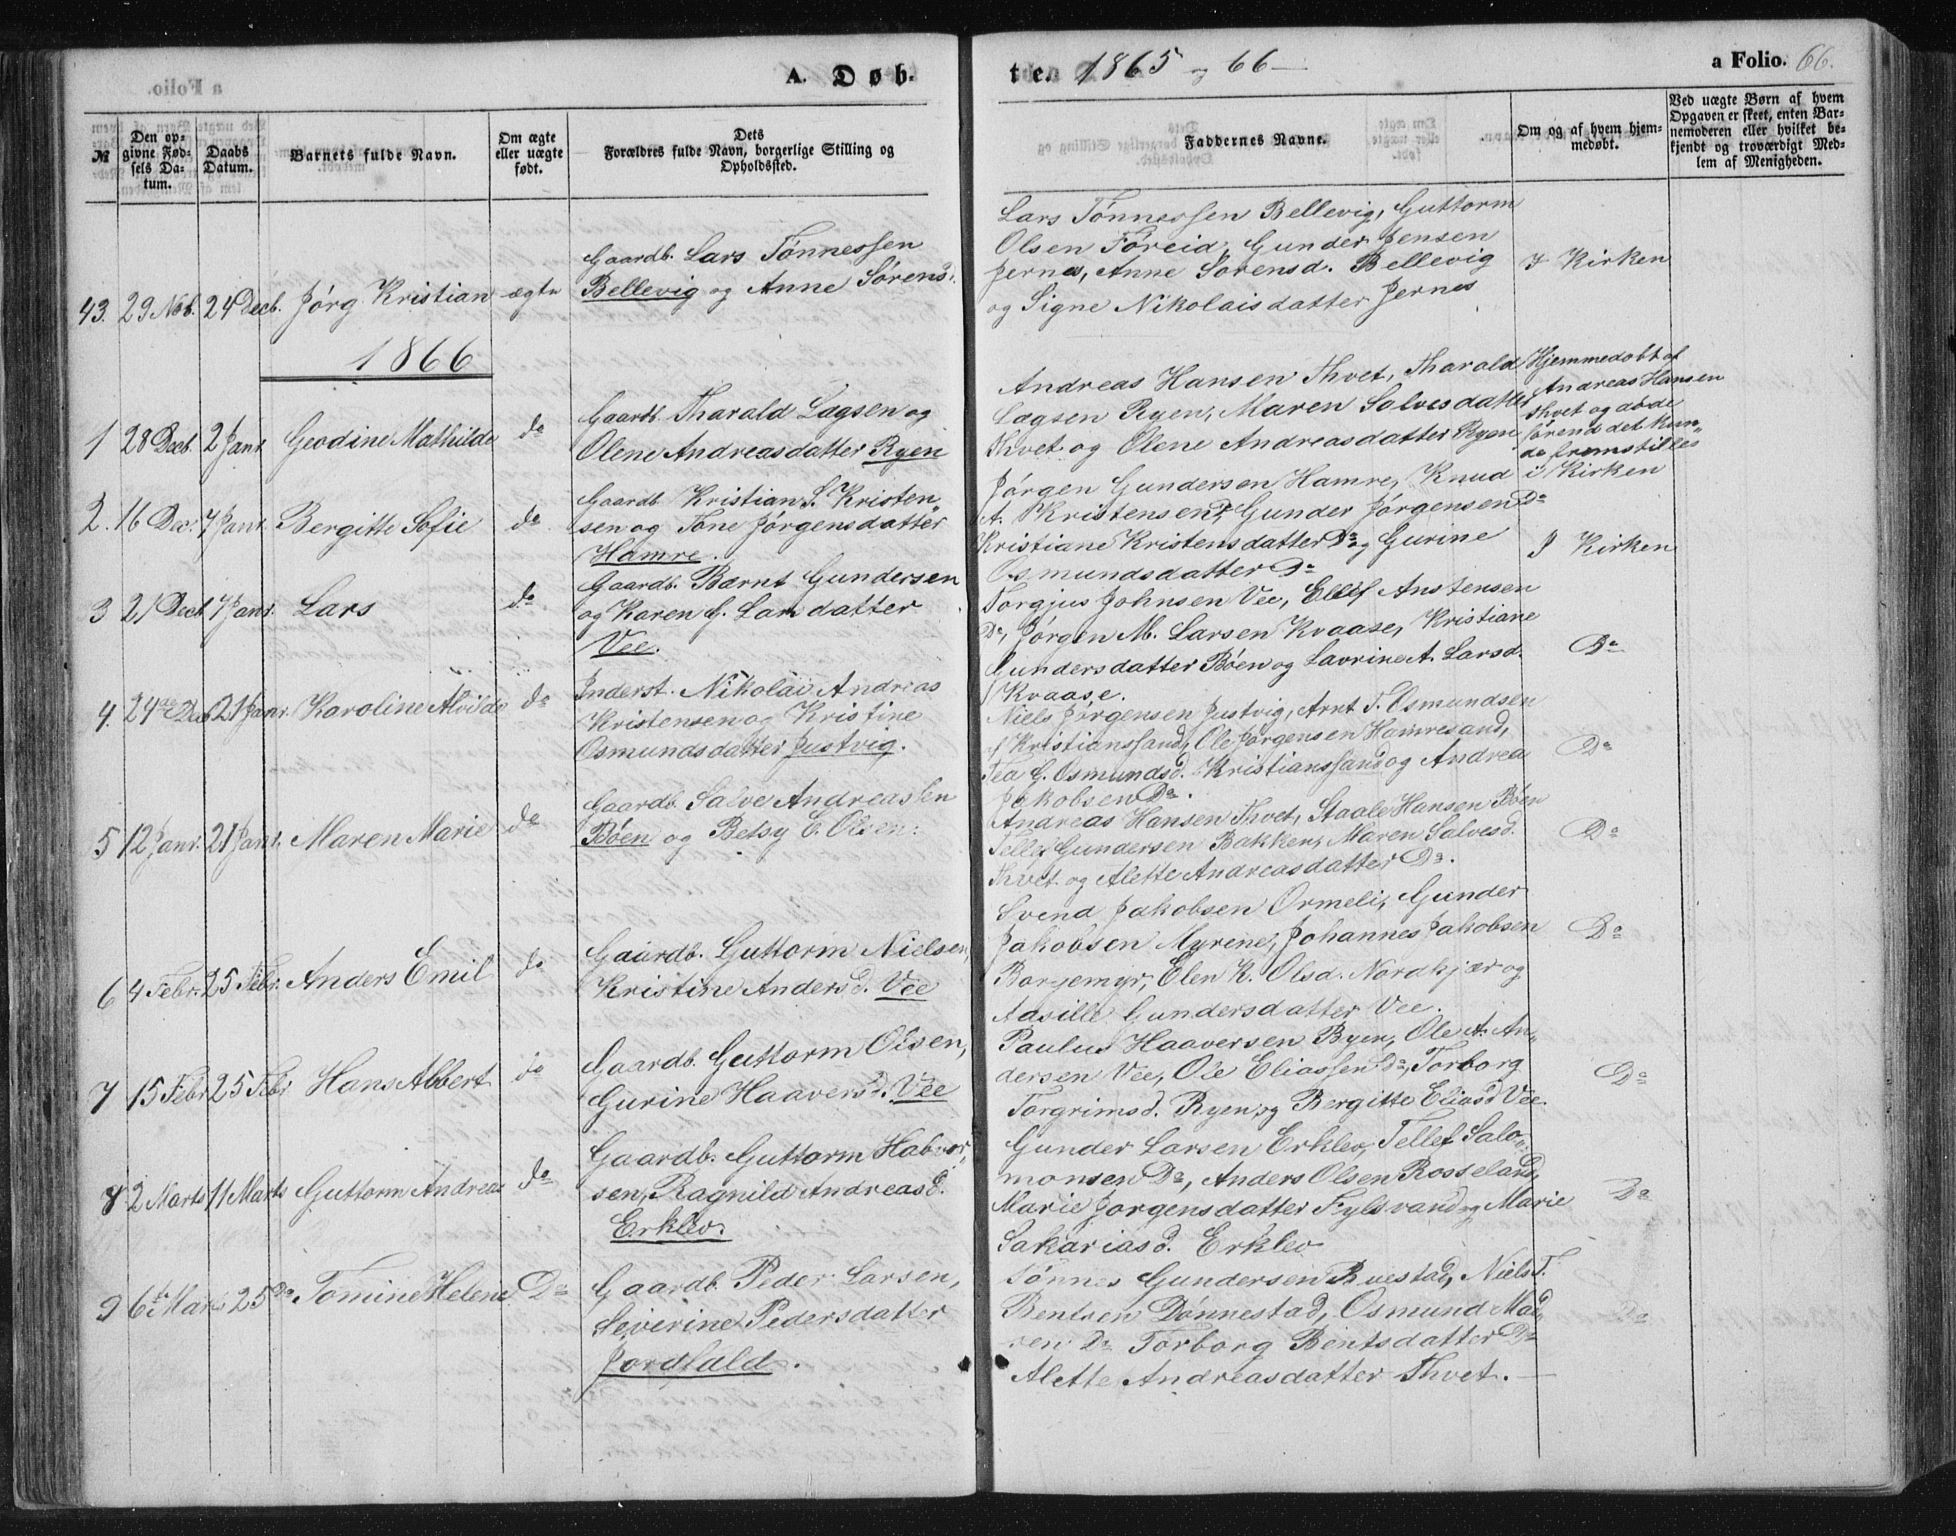 A. Døb-
te. 1865 og 66
a Folio. 66.
№
Den op-
givne Fød-
sels Da-
tum.
Daabs
Datum.
Barnets fulde Navn.
Om ægte
eller uægte
født.
Dets
Forældres fulde Navn, borgerlige Stilling og
Opholdssted.
Faddernes Navne.
Om og af hvem hjem-
medøbt.
Ved uægte Børn af hvem
Opgaven er skeet, enten Bar-
nemoderen eller hvilket be-
kjendt og troværdigt Med-
lem af Menigheden.
43. 29 Nob. 24 Decb. Jørg Kristian ægte
Gaardb. Lars Tønnessen
Bellevig og Anne Sørensd.
Lars Tønnessen Bellevig, Guttorm
Olsen Føreid, Gunder Jensen
Jernes, Anne Sørensd. Bellevig
og Signe Nikolaisdatter Jernes
I Kirken
1866
1 28 Decb. 2 Janr. Geodine Mathilde do
Gaardb. Tharald Lagsen og
Olene Andreasdatter Ryen
Andreas Hansen Thvet, Tharald
Lagsen Ryen, Maren Salvesdatter
Thvet og Olene Andreasdatter Ryen
Hjemmedøbt af
Andreas Hansen
Thvet og døde
førend det kun-
de fremstilles
i Kirken
2. 16 Dec. 7 Janr. Bergitte Sofie do
Gaardb. Kristian S. Kristen-
sen og Tone Jørgensdatter
Hamre.
Jørgen Gundersen Hamre, Knud
A. Kristensen, Gunder Jørgensen Do
Kristiane Kristensdatter Do og Gurine
Osmundsdatter Do
I Kirken
3 21 Decb. 7 Janr. Lars do
Gaardb. Bærnt Gundersen
og Karen G. Larsdatter
Vee.
Torgjus Johnsen Vee, Ellef Anstensen
Do, Jørgen M. Larsen Kvaase, Kristiane
Gundersdatter Bøen og Lavrine A. Larsd.
Kvaase.
Do
4. 24de Dec 21 Janr. Karoline Alvilde do
Inderst. Nikolai Andreas
Kristensen og Kristine
Osmundsdatter Justvig.
Niels Jørgensen Justvig, Arnt T. Osmundsen
Kristianssand, Ole Jørgensen Hamresand,
Tea G. Osmundsd. Kristianssand og Andrea
Jakobsen Do.
Do
5 12 Janr. 21 Janr. Maren Marie do
Gaardb. Salve Andreassen
Bøen og Betsy C. Olsen.
Andreas Hansen Thvet, Staale Hansen Bøen
Tellef Gundersen Bakken, Maren Salvesd.
Thvet og Alette Andreasdatter Do.
Do
6 4 Febr. 25 Febr. Anders Emil do
Gaardb. Guttorm Nielsen,
Kristine Andersd. Vee
Svend Jakobsen Ormeli, Gunder
Jakobsen Myrene, Johannes Jakobsen
Borgemyr, Elen K. Olsd. Nordkjær og
Aasille Gundersdatter Vee.
Do
7 15 Febr 25 Febr Hans Albert do
Gaardb. Guttorm Olsen,
Gurine Haaversd. Vee
Paulus Haaversen Ryen, Ole A. An-
dersen Vee, Ole Eliassen Do, Torborg
Torgrimsd. Ryen og Bergitte Eliasd Vee.
Do
8 2 Marts 11 Marts Guttorm Andreas do
Gaardb. Guttorm Halvor-
sen, Ragnild Andreasd.
Erklev.
Gunder Larsen Erklev, Tellef Salo-
monsen Do, Anders Olsen Rosseland,
Marie Jørgensdatter Fylsvand og Marie
Sakariasd. Erklev
Do
9 6te Marts 25 Do Tomine Helene Do
Gaardb. Peder Larsen,
Severine Pedersdatter
Jordfald.
Tønnes Gundersen Bvestad, Niels T.
Bentsen Dønnestad, Osmund Mad-
sen Do Torborg Bentsdatter Do
Alette Andreasdatter Thvet.
Do